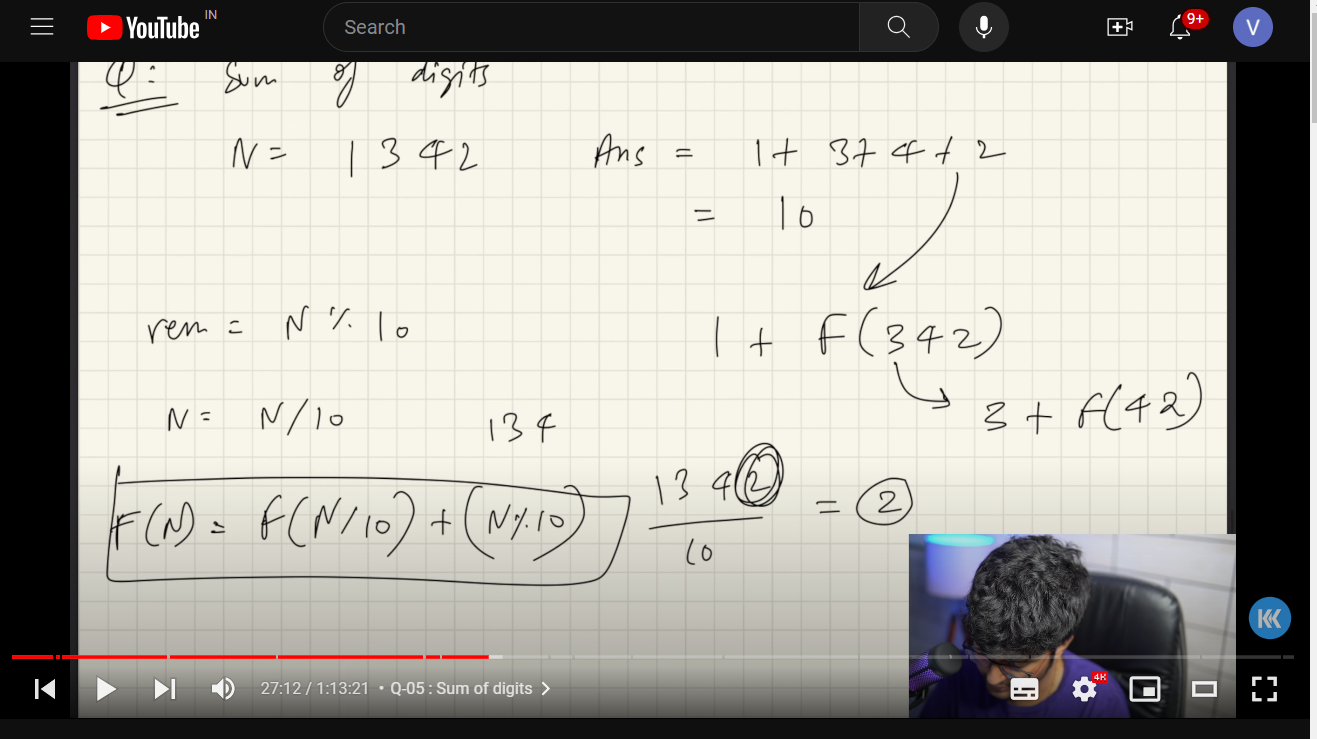 YouTube IN
Search
9+
V
Q: Sum of digits
N = 1342 Ans = 1 + 3 + 4 + 2
= 10
rem = N % 10 1 + F(342)
N = N/10 134 3 + F(42)
F(N) = F(N/10) + (N%10) 1342 = 2
10
27:12 / 1:13:21 • Q-05 : Sum of digits >
4K